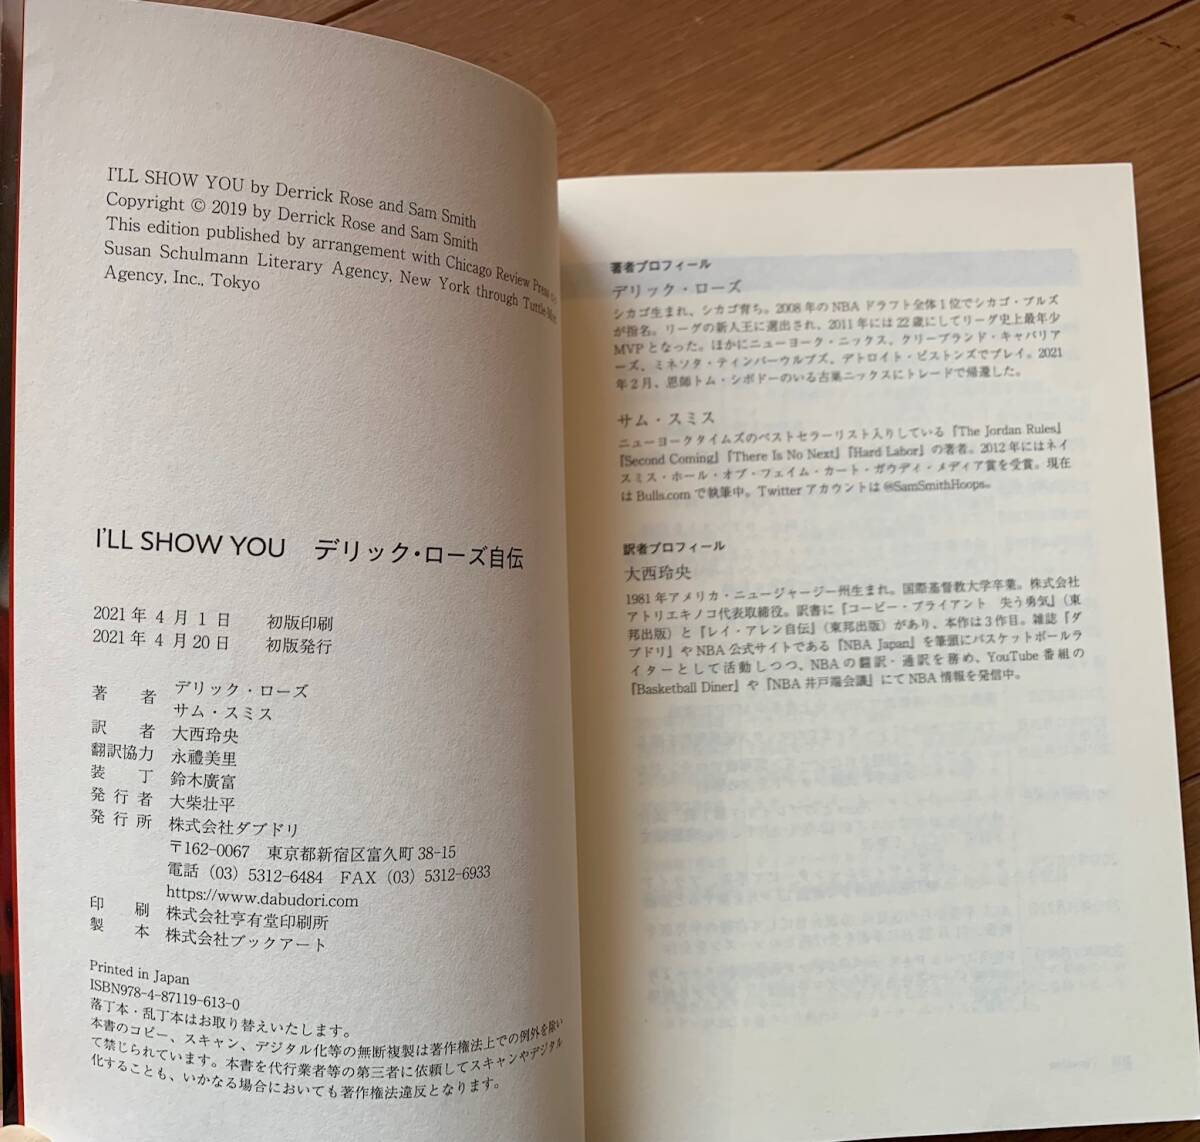 I'LL SHOW YOU by Derrick Rose and Sam Smith
Copyright © 2019 by Derrick Rose and Sam Smith
This edition published by arrangement with Chicago Review Press c/o
Susan Schulmann Literary Agency, New York through Tuttle-Mori
Agency, Inc., Tokyo
I'LL SHOW YOU デリック・ローズ自伝
2021年 4 月 1 日 初版印刷
2021年 4 月20日 初版発行
著 者 デリック・ローズ
サム・スミス
訳 者 大西玲央
翻訳協力 永禮美里
装 丁 鈴木廣富
発 行 者 大柴壮平
発 行 所 株式会社ダブドリ
〒162-0067 東京都新宿区富久町 38-15
電話 (03) 5312-6484 FAX (03) 5312-6933
https://www.dabudori.com
印 刷 株式会社亨有堂印刷所
製 本 株式会社ブックアート
Printed in Japan
ISBN978-4-87119-613-0
落丁本・乱丁本はお取り替えいたします。
本書のコピー、スキャン、デジタル化等の無断複製は著作権法上での例外を除い
て禁じられています。本書を代行業者等の第三者に依頼してスキャンやデジタル
化することも、いかなる場合においても著作権法違反となります。
著者プロフィール
デリック・ローズ
シカゴ生まれ、シカゴ育ち。2008 年の NBA ドラフト全体 1 位でシカゴ・ブルズ
が指名。リーグの新人王に選出され、2011 年には 22 歳にしてリーグ史上最年少
MVP となった。ほかにニューヨーク・ニックス、クリーブランド・キャバリア
ーズ、ミネソタ・ティンバーウルブズ、デトロイト・ピストンズでプレイ。2021
年 2 月、恩師トム・シボドーのいる古巣ニックスにトレードで帰還した。
サム・スミス
ニューヨークタイムズのベストセラーリスト入りしている『The Jordan Rules』
『Second Coming』『There Is No Next』『Hard Labor』の著者。2012 年にはネイ
スミス・ホール・オブ・フェイム・カート・ガウディ・メディア賞を受賞。現在
は Bulls.com で執筆中。Twitter アカウントは @SamSmithHoops。
訳者プロフィール
大西玲央
1981 年アメリカ・ニュージャージー州生まれ。国際基督教大学卒業。株式会社
アトリエキノコ代表取締役。訳書に『コービー・ブライアント 失う勇気』(東
邦出版) と『レイ・アレン自伝』(東邦出版) があり、本作は 3 作目。雑誌『ダ
ブドリ』や NBA 公式サイトである『NBA Japan』を筆頭にバスケットボールラ
イターとして活動しつつ、NBA の翻訳・通訳を務め、YouTube 番組の
『Basketball Diner』や『NBA 井戸端会議』にて NBA 情報を発信中。